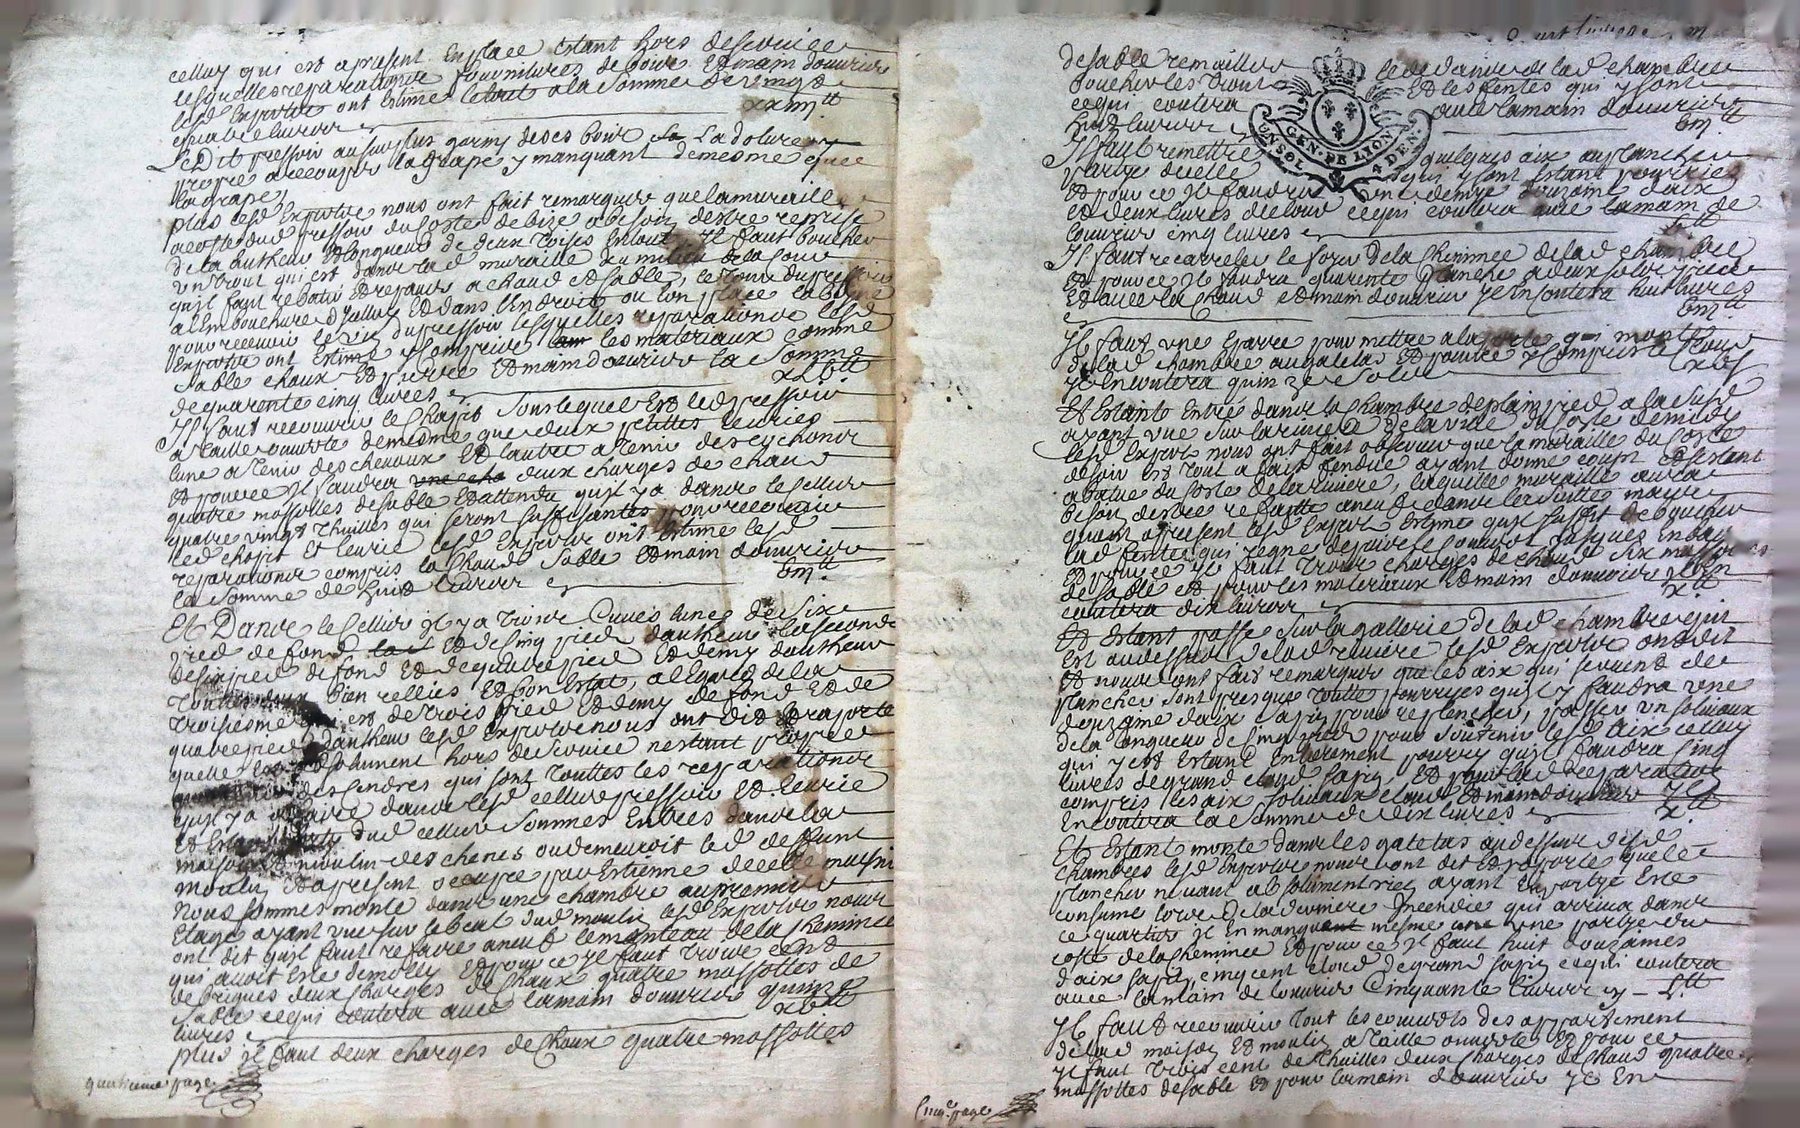 celluy qui est apresent en place estant hors deservice
lesquelles reparations fournitures de bois et main douvrier
lesd experts ont estimé le tout a la somme de vingt
quatre livres xxiiij tt
Ledit pressoir au surplus garny de ses bois La doloire
propre a coupper la grape y manquant de mesme
la grape
plus lesd experts nous ont fait remarquer que la muraille
a costé dud pressoir du costé de bize a besoin destre reprise
de la hauteur et longueur de deux toises en tout Il faut boucher
un trou qui est dans lad muraille au milieu de la
quil faut rebatir et reparer a chaud et sable, le tour du pressoir
a l'embouchure et dans lendroit ou lon place la
pour recevoir le vin du pressoir lesquelles reparations lesd
experts ont estimé y compris les materiaux comme
sable chaux et pierre et main douvrier la somme
de quarente cinq livres xLv tt
Il faut recouvrir le chapit sous lequel est led pressoir
a taille ouverte de mesme que deux petittes escuries
lune a tenir des chevaux et lautre a tenir des cochons
et pour ce Il faudra deux charges de chaux
quatre massottes de sable et attendu quil y a dans le cellier
quatre vingt thuilles qui seront suffisantes pour recouvrir
led chapit et escurie lesd experts ont estimé lesd
reparations compris la chaud sable et main douvrier
la somme de huit livres viij tt
Et Dans le cellier Il y a trois Cuves lune de six
pied de fond et de cinq pied dautheur la seconde
de six pied de fond et de quatre pied et demy dautheur
touttes deux bien relliées et bon estat, a legard de la
troisiesme est de trois pied et demy de fond et de
quatre pied dautheur lesd experts nous ont dit et raporté
quelle est absolument hors de service nestant propre
des cendres qui sont touttes les reparations
quil y a a faire dans lesd cellier pressoir et escurie
et estant dud cellier sommes entrés dans la
maison et moulin des chenes ou demeuroit led deffunt
moulin et apresent occupé par Estienne
Nous sommes monté dans une chambre au premier
Etage ayant vue sur le dud moulin lesd experts nous
ont dit quil faut refaire a neuf le manteau de la cheminée
qui avoit esté demolly et pour ce Il faut trois cent
de briques deux charges de chaux quatre massottes de
sable ce qui coutera avec la main douvrier quinze
livres xv tt
plus Il faut deux charges de chaux quatre massottes
quatrieme page
de sable remailler le dedans de lad chambre
boucher les trous et les fentes qui y sont
ce qui coutera avec la main douvrier
huit livres viij tt
GEN. DE LYON
Il faut remettre quelques aix au plancher
qui y sont estant pourries
et pour ce Il faudra une demye douzaine daix
et deux livres de cloud ce qui coutera avec la main de
louvrier cinq livres v tt
Il faut recarreler le foyer de la cheminée de lad chambre
et pour ce Il faudra quarente
et avec la chaud et main douvrier Il en coutera huit livres
viij tt
Il faut une pour mettre a la porte qui monte
de lad chambre au galetas et pour ce y compris le
Il en coutera quinze sols xv s
Et Estants entré dans la chambre de plain pied a la susd
ayant vue sur la riviere et de la ville du costé de midy
lesd experts nous ont fait observer que la muraille du costé
de soir est tout a fait fendue ayant donné coup et sestant
abatue du costé de la riviere, laquelle muraille aura
besoin destre refaitte a neuf dans les suittes mais
quant apresent lesd experts estime quil suffit de boucher
lad fente qui regne depuis le couvert jusques en bas
et pour ce Il faut trois charges de chaud six massottes
de sable et pour les materiaux et main douvrier Il en
coutera dix livres x tt
Et Estant passé sur la gallerie de lad chambre qui
est audessus de la riviere lesd experts ont dit
et nous ont fait remarquer que les aix qui servent de
plancher sont presque toutte pourryes quil y faudra une
douzaine daix sapin pour replancher, passer un soliveaux
de la longueur de cinq pied pour soutenir lesd Aix celluy
qui y est estant entierement pourry quil faudra cinq
livres de grand cloud sapin, et pour lad reparation
compris les aix soliveaux cloud et main douvrier Il
en coutera la somme de dix livres x tt
Et Estant monté dans les galetas au dessus desd
chambres lesd experts nous ont dit et raporté que le
plancher ne vaut absolument rien ayant en partye esté
consumé lors de la derniere Incendie qui arriva dans
ce quartier Il en manque mesme une partye du
costé de la cheminée et pour ce Il faut huit douzaines
daix sapin, cinq cent cloud de grand sapin ce qui coutera
avec la main de louvrier Cinquante livres L tt
Il faut recouvrir tout les couverts des appartement
de lad maison et moulin a taille ouverte et pour ce
Il faut trois cent de thuilles deux charges de chaud quatre
massottes de sable et pour la main douvrier Il en
Cinq.e page